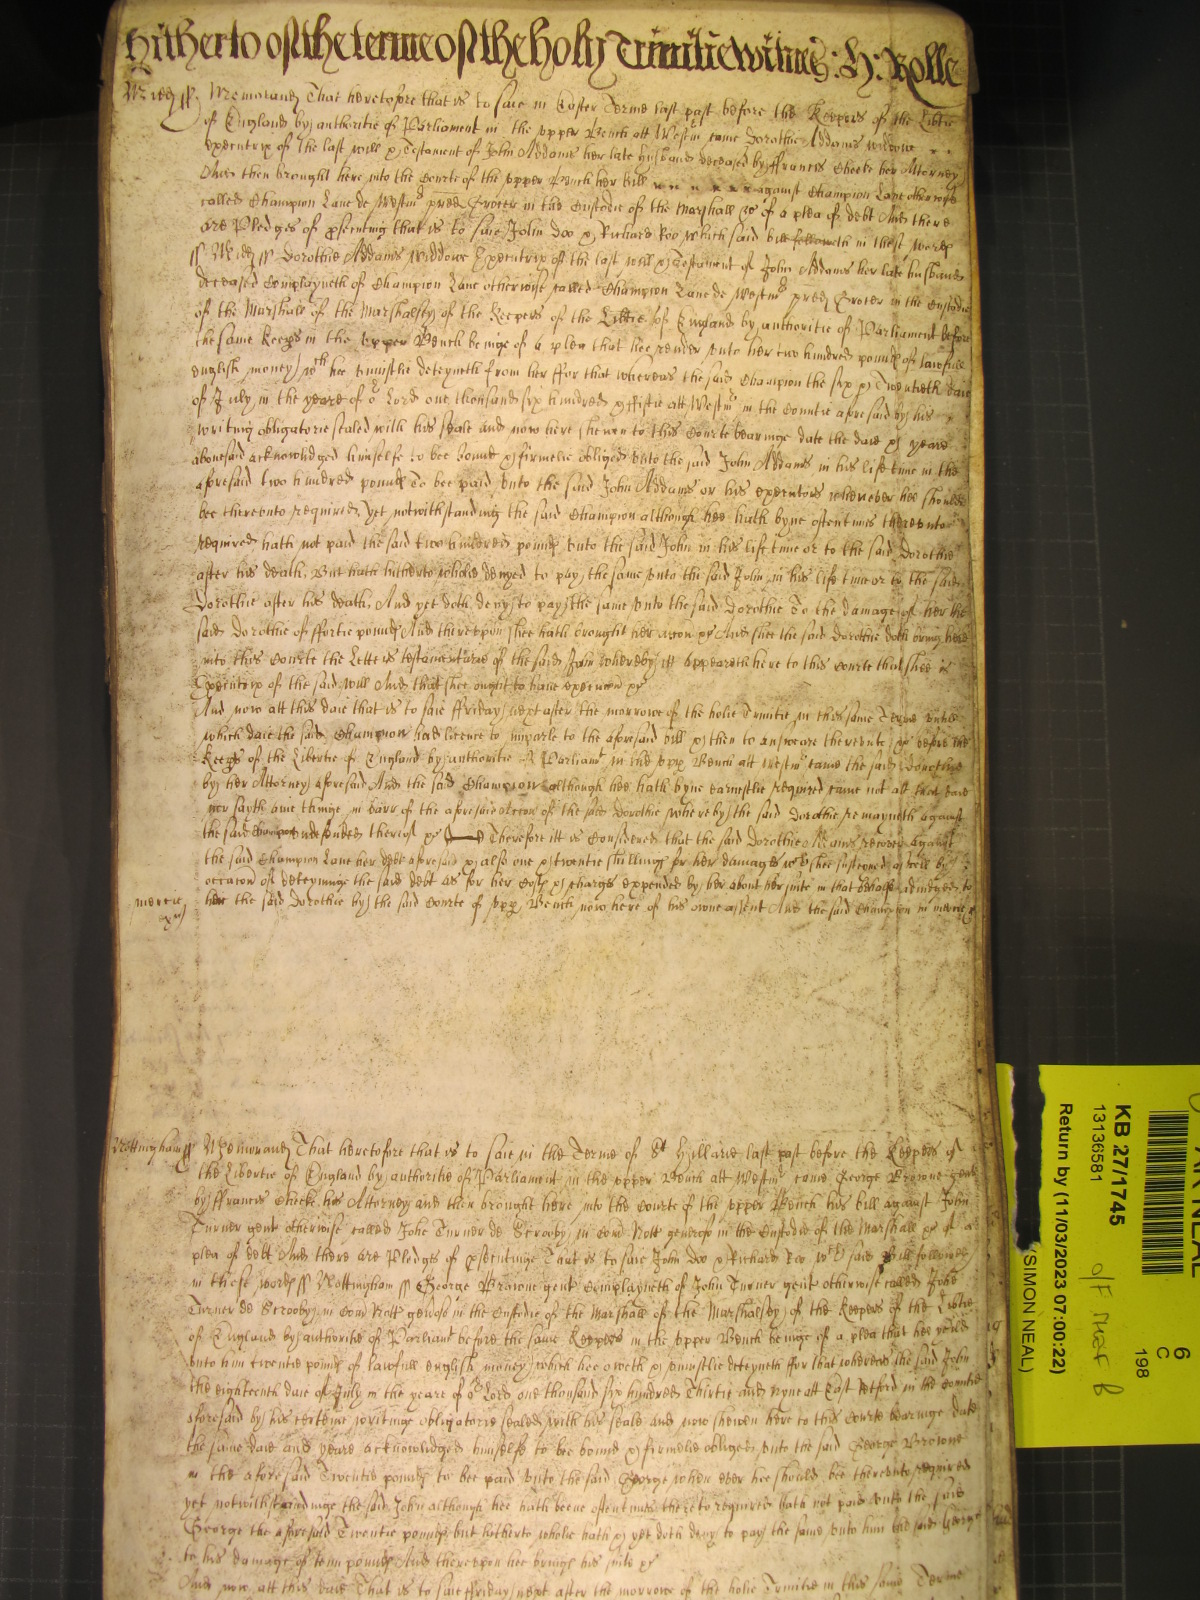 Hitherto of the terme of the holy Trinitie Witnes: H: Rolle
Midd ss Memorand That heretofore that is to saie in Easter Terme last past before the Keepers of the Libtie
of England by authoritie of Parliament in the upper Bench att Westm came Dorothie Addams widdowe
executrix of the last will & Testament of John Addams her late husband deceased by ffrancis Cheeke her Attorney
And then brought here into the Courte of the upper Bench her bill against Champion Lane otherwise
called Champion Lane de Westm pred Grocer in the Custodie of the Marshall &c of a plea of debt And there
are Pledges of psecuting that is to saie John Doo & Richard Roo which said bill followeth in these words
ss Midd ss Dorothie Addams Widdowe Executrix of the last will & Testament of John Addams her late husband
deceased Complayneth of Champion Lane otherwise called Champion Lane de Westm pred Grocer in the Custodie
of the Marshall of the Marshalsey of the Keepers of the Libtie of England by authoritie of Parliament before
the same Keeps in the upper Bench beinge of a plea that hee render unto her two hundred pounds of lawfull
english money wch hee uniustlie deteyneth from her ffor that whereas the said Champion the six & Twentieth daie
of July in the yeare of or Lord one thousand six hundred & ffiftie att Westm in the Countie aforesaid by his
writing obligatorie sealed with his seale and now here shewen to this Courte bearinge date the daie & yeare
abovesaid acknowledged himselfe to bee bound & firmelie obliged unto the said John Addams in his life time in the
aforesaid two hundred pounds To bee paid unto the said John Addams or his executors whenever hee should
bee thereunto required yet notwithstanding the said Champion although hee hath byne oftentimes thereunto
required hath not paid the said two hundred pounds unto the said John in his life time or to the said Dorothie
after his death, But hath hitherto wholie denyed to pay the same unto the said John in his life time or to the said
Dorothie after his death, And yet doth deny to pay the same unto the said Dorothie To the damage of her the
said Dorothie of ffortie pounds And thereupon shee hath brought her accon &c And shee the said Dorothie doth bring here
into this Courte the Letters testamentarie of the said John whereby itt appeareth here to this Courte that shee is
Executrix of the said will And that shee ought to have execucon &c
And now att this daie that is to saie ffriday next after the morrowe of the holie Trinitie in this same Terme untill
which daie the said Champion had licence to imparle to the aforesaid bill & then to answeare thereunto &c before the
Keeps of the Libertie of England by authoritie of Parliamt in the upp Bench att Westm came the said Dorothie
by her Attorney aforesaid And the said Champion although hee hath byne earnestlie required came not att that daie
nor sayth anie thinge in barr of the aforesaid accon of the said Dorothie whereby the said Dorothie remayneth against
the said Champion undefended therein &c Therefore itt is Considered that the said Dorothie Addams recover against
the said Champion Lane her debt aforesaid & also one & twentie shillings for her damages wch shee susteyned aswell by
occacon of deteyninge the said debt as for her costs & charges expended by her about her suite in that behalfe adiudged to
mercie her the said Dorothie by the said Courte of upp Bench now here of his owne assent And the said Champion in mercie &c
Nottingham ss Memorand That heretofore that is to saie in the Terme of St Hillarie last past before the Keepers of
the Libertie of England by authoritie of Parliament in the upper Bench att Westm came George Browne gent
by ffrancis Cheeke his Attorney and then brought here into the Courte of the upper Bench his bill against John
Turner gent otherwise called John Turner de Scrooby in Com Nott generoso in the Custodie of the Marshall &c of a
plea of debt And there are Pledges of psecutinge That is to saie John Doo & Richard Roo wch said Bill followeth
in these words ss Nottingham ss George Browne gent Complayneth of John Turner gent otherwise called John
Turner de Scrooby in Com Nott geñoso in the Custodie of the Marshall of the Marshalsey of the Keepers of the Libtie
of England by authoritie of Parliamt before the same Keepers in the upper Bench beinge of a plea that hee render
unto him twentie pounds of lawfull english money which hee oweth & uniustlie deteyneth ffor that whereas the said John
the eighteenth daie of July in the yeare of or Lord one thousand six hundred Thirtie and nyne att East Retford in the Countie
aforesaid by his certeine writinge obligatorie sealed with his seale and now shewen here to this Courte bearinge date
the same daie and yeare acknowledged himselfe to bee bound & firmelie obliged unto the said George Browne
in the aforesaid Twentie pounds to bee paid unto the said George when ever hee should bee thereunto required
yet notwithstandinge the said John although hee hath beene oftentimes thereto required hath not paid unto the said
George the aforesaid Twentie pounds but hitherto wholie hath & yet doth deny to pay the same unto him the said George
to his damage of tenn pounds And thereupon hee bringe his suite &c
And now att this daie That is to saie ffriday next after the morrowe of the holie Trinitie in this same Terme
KB 27/1745
13136581
Return by (11/03/2023 07:00:22)
(SIMON NEAL)
6
C
198